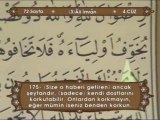 72.Sayfa 3:Âl-i İmrân 4.CÜZ
يُخَوِّفُ أَوْلِيَاءَهُ فَلَا
175- (Size o haberi getiren) ancak
şeytandır. (sadece) kendi dostlarını
korkutabilir. Onlardan korkmayın,
eğer mümin iseniz benden korkun.